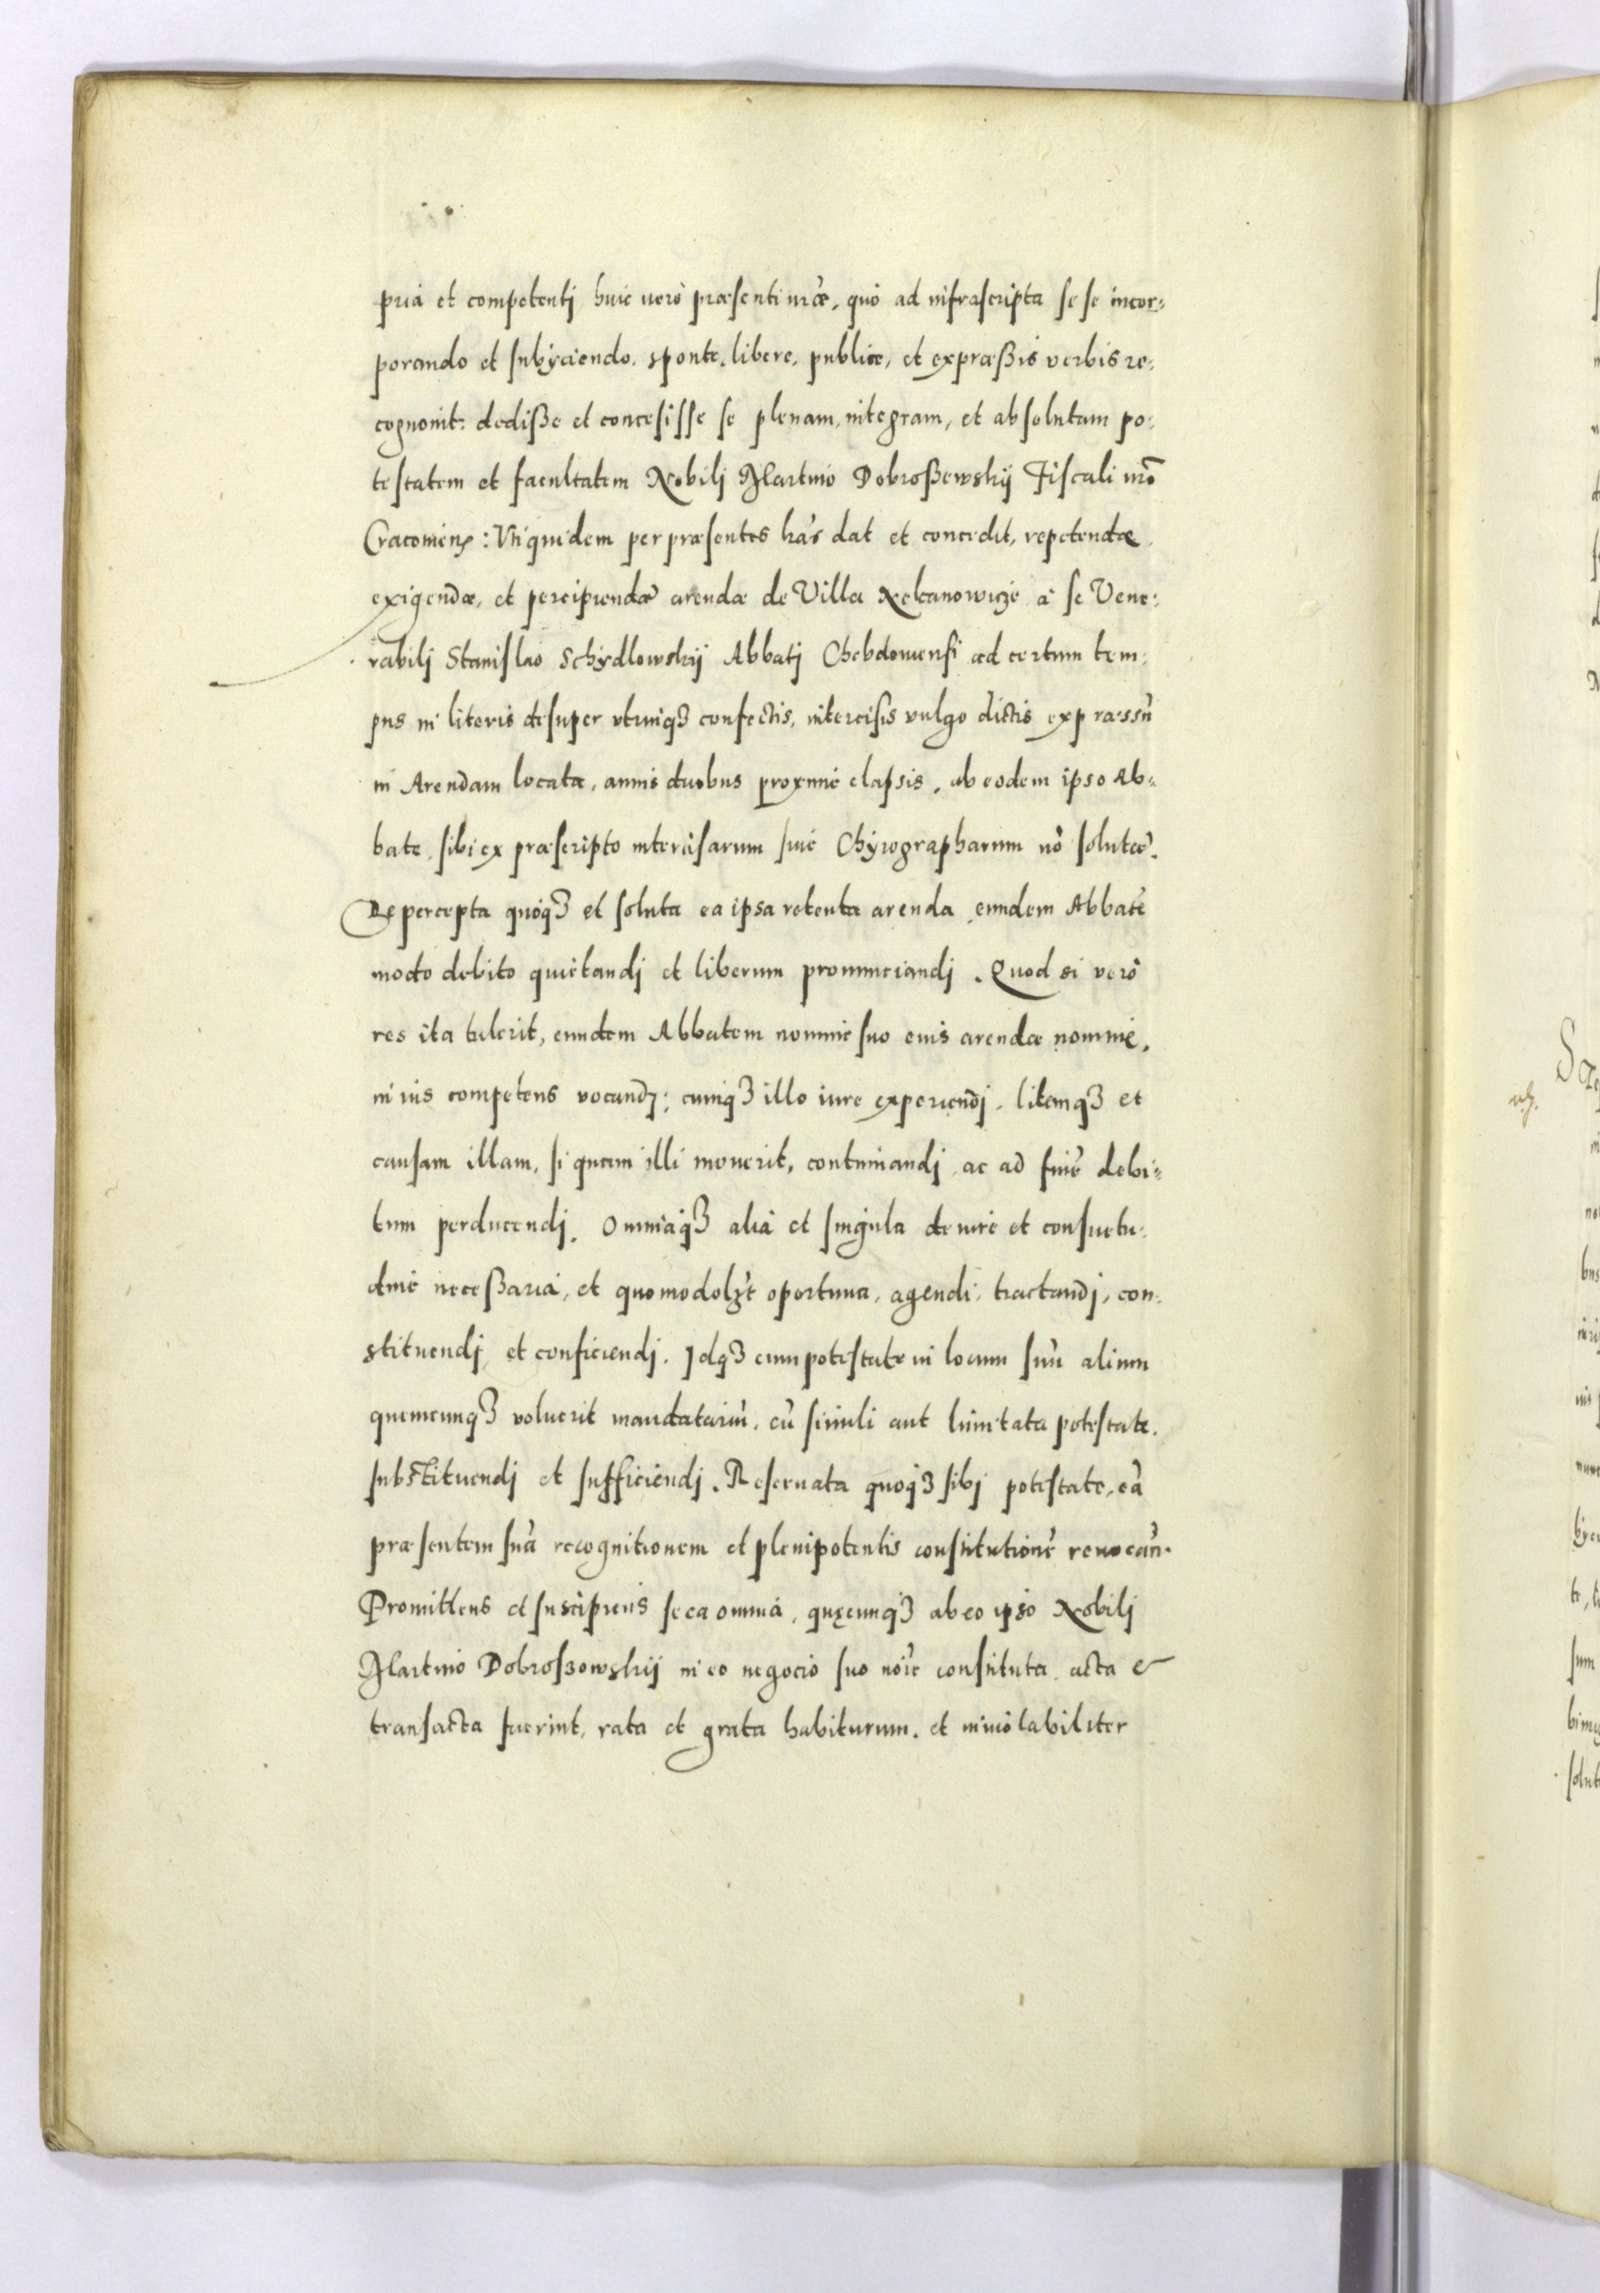 pria et competentj huic uero præsenti nr̃æ, quo ad infrascripta se se incor:
porando et subijciendo. sponte. libere. publice, et expræßis verbis re:
cognouit: dediße et concesisse se plenam, integram, et absolutam po:
testatem et facultatem Nobilj Martino Dobroßewskij Fiscali nr̃o
Cracouien: Vti quidem per præsentes has dat et concedit, repetendæ
exigendæ, et percipiendæ arendæ de Villa Nelcanowicze a se Vene:
rabilj Stanislao Schydlowskij Abbatj Chebdouiensi ad certum tem:
pus in literis desuper vtrinq3 confectis, intercisis vulgo dictis expræssũ
in Arendam locatæ, annis duobus proxime elapsis, ab eodem ipso Ab:
bate, sibi ex præscripto intercisarum siue Chyrographarum nõ solutæ.
De percepta quoq3 et soluta ea ipsa retenta arenda eundem Abbatẽ
modo debito quietandj et liberum pronunciandj. Quod si vero
res ita tulerit, eundem Abbatem nomine suo eius arendæ nomine,
in ius competens vocandj; cumq3 illo iure experiendj. litemq3 et
causam illam, si quam illi mouerit, continuandj ac ad finẽ debi:
tum perducendj. Omniaq3 alia et singula de iure et consuetu:
dine neceßaria, et quomodolz̃t oportuna, agendi, tractandj, con:
stituendj et conficiendj. Idq3 cum potestate in locum suũ alium
quemcunq3 voluerit mandatariũ, cũ simili aut limitata potestate.
substituendj et sufficiendj. Reseruata quoq3 sibj potestate, eã
præsentem suã recognitionem et plenipotentis constitutionẽ reuocañ.
Promittens et suscipiens se ea omnia, quęcunq3 ab eo ipso Nobilj
Martino Dobroszowskij in eo negocio suo noĩe constituta acta &
transacta fuerint, rata et grata habiturum. et inuiolabiliter